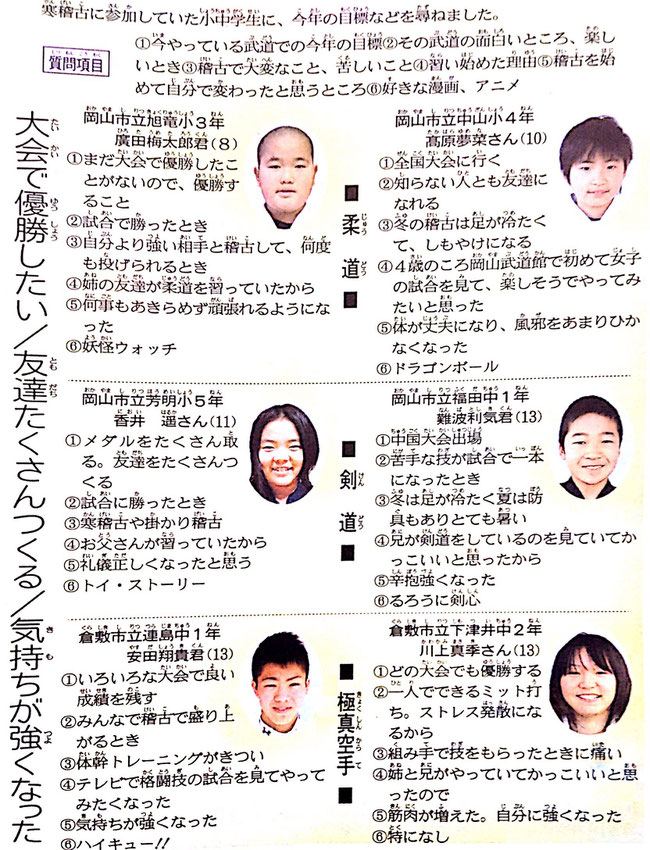 寒稽古に参加していた小中学生に、今年の目標などを尋ねました。
質問項目
①今やっている武道での今年の目標②その武道の面白いところ、楽し
いとき③稽古で大変なこと、苦しいこと④習い始めた理由⑤稽古を始
めて自分で変わったと思うところ⑥好きな漫画、アニメ
大会で優勝したい/友達たくさんつくる/気持ちが強くなった
■柔道■
岡山市立旭竜小3年
廣田梅太郎君(8)
①まだ大会で優勝したこ
とがないので、優勝す
ること
②試合で勝ったとき
③自分より強い相手と稽古して、何度
も投げられるとき
④姉の友達が柔道を習っていたから
⑤何事もあきらめず頑張れるようにな
った
⑥妖怪ウォッチ
岡山市立中山小4年
髙原夢菜さん(10)
①全国大会に行く
②知らない人とも友達に
なれる
③冬の稽古は足が冷たく
て、しもやけになる
④4歳のころ岡山武道館で初めて女子
の試合を見て、楽しそうでやってみ
たいと思った
⑤体が丈夫になり、風邪をあまりひか
なくなった
⑥ドラゴンボール
■剣道■
岡山市立芳明小5年
香井 遥さん(11)
①メダルをたくさん取
る。友達をたくさんつ
くる
②試合に勝ったとき
③寒稽古や掛かり稽古
④お父さんが習っていたから
⑤礼儀正しくなったと思う
⑥トイ・ストーリー
岡山市立福田中1年
難波利気君(13)
①中国大会出場
②苦手な技が試合で一本
になったとき
③冬は足が冷たく夏は防
具もありとても暑い
④兄が剣道をしているのを見ていてか
っこいいと思ったから
⑤辛抱強くなった
⑥るろうに剣心
■極真空手■
倉敷市立連島中1年
安田翔貴君(13)
①いろいろな大会で良い
成績を残す
②みんなで稽古で盛り上
がるとき
③体幹トレーニングがきつい
④テレビで格闘技の試合を見てやって
みたくなった
⑤気持ちが強くなった
⑥ハイキュー!!
倉敷市立下津井中2年
川上真季さん(13)
①どの大会でも優勝する
②一人でできるミット打
ち。ストレス発散にな
るから
③組み手で技をもらったときに痛い
④姉と兄がやっていてかっこいいと思
ったので
⑤筋肉が増えた。自分に強くなった
⑥特になし